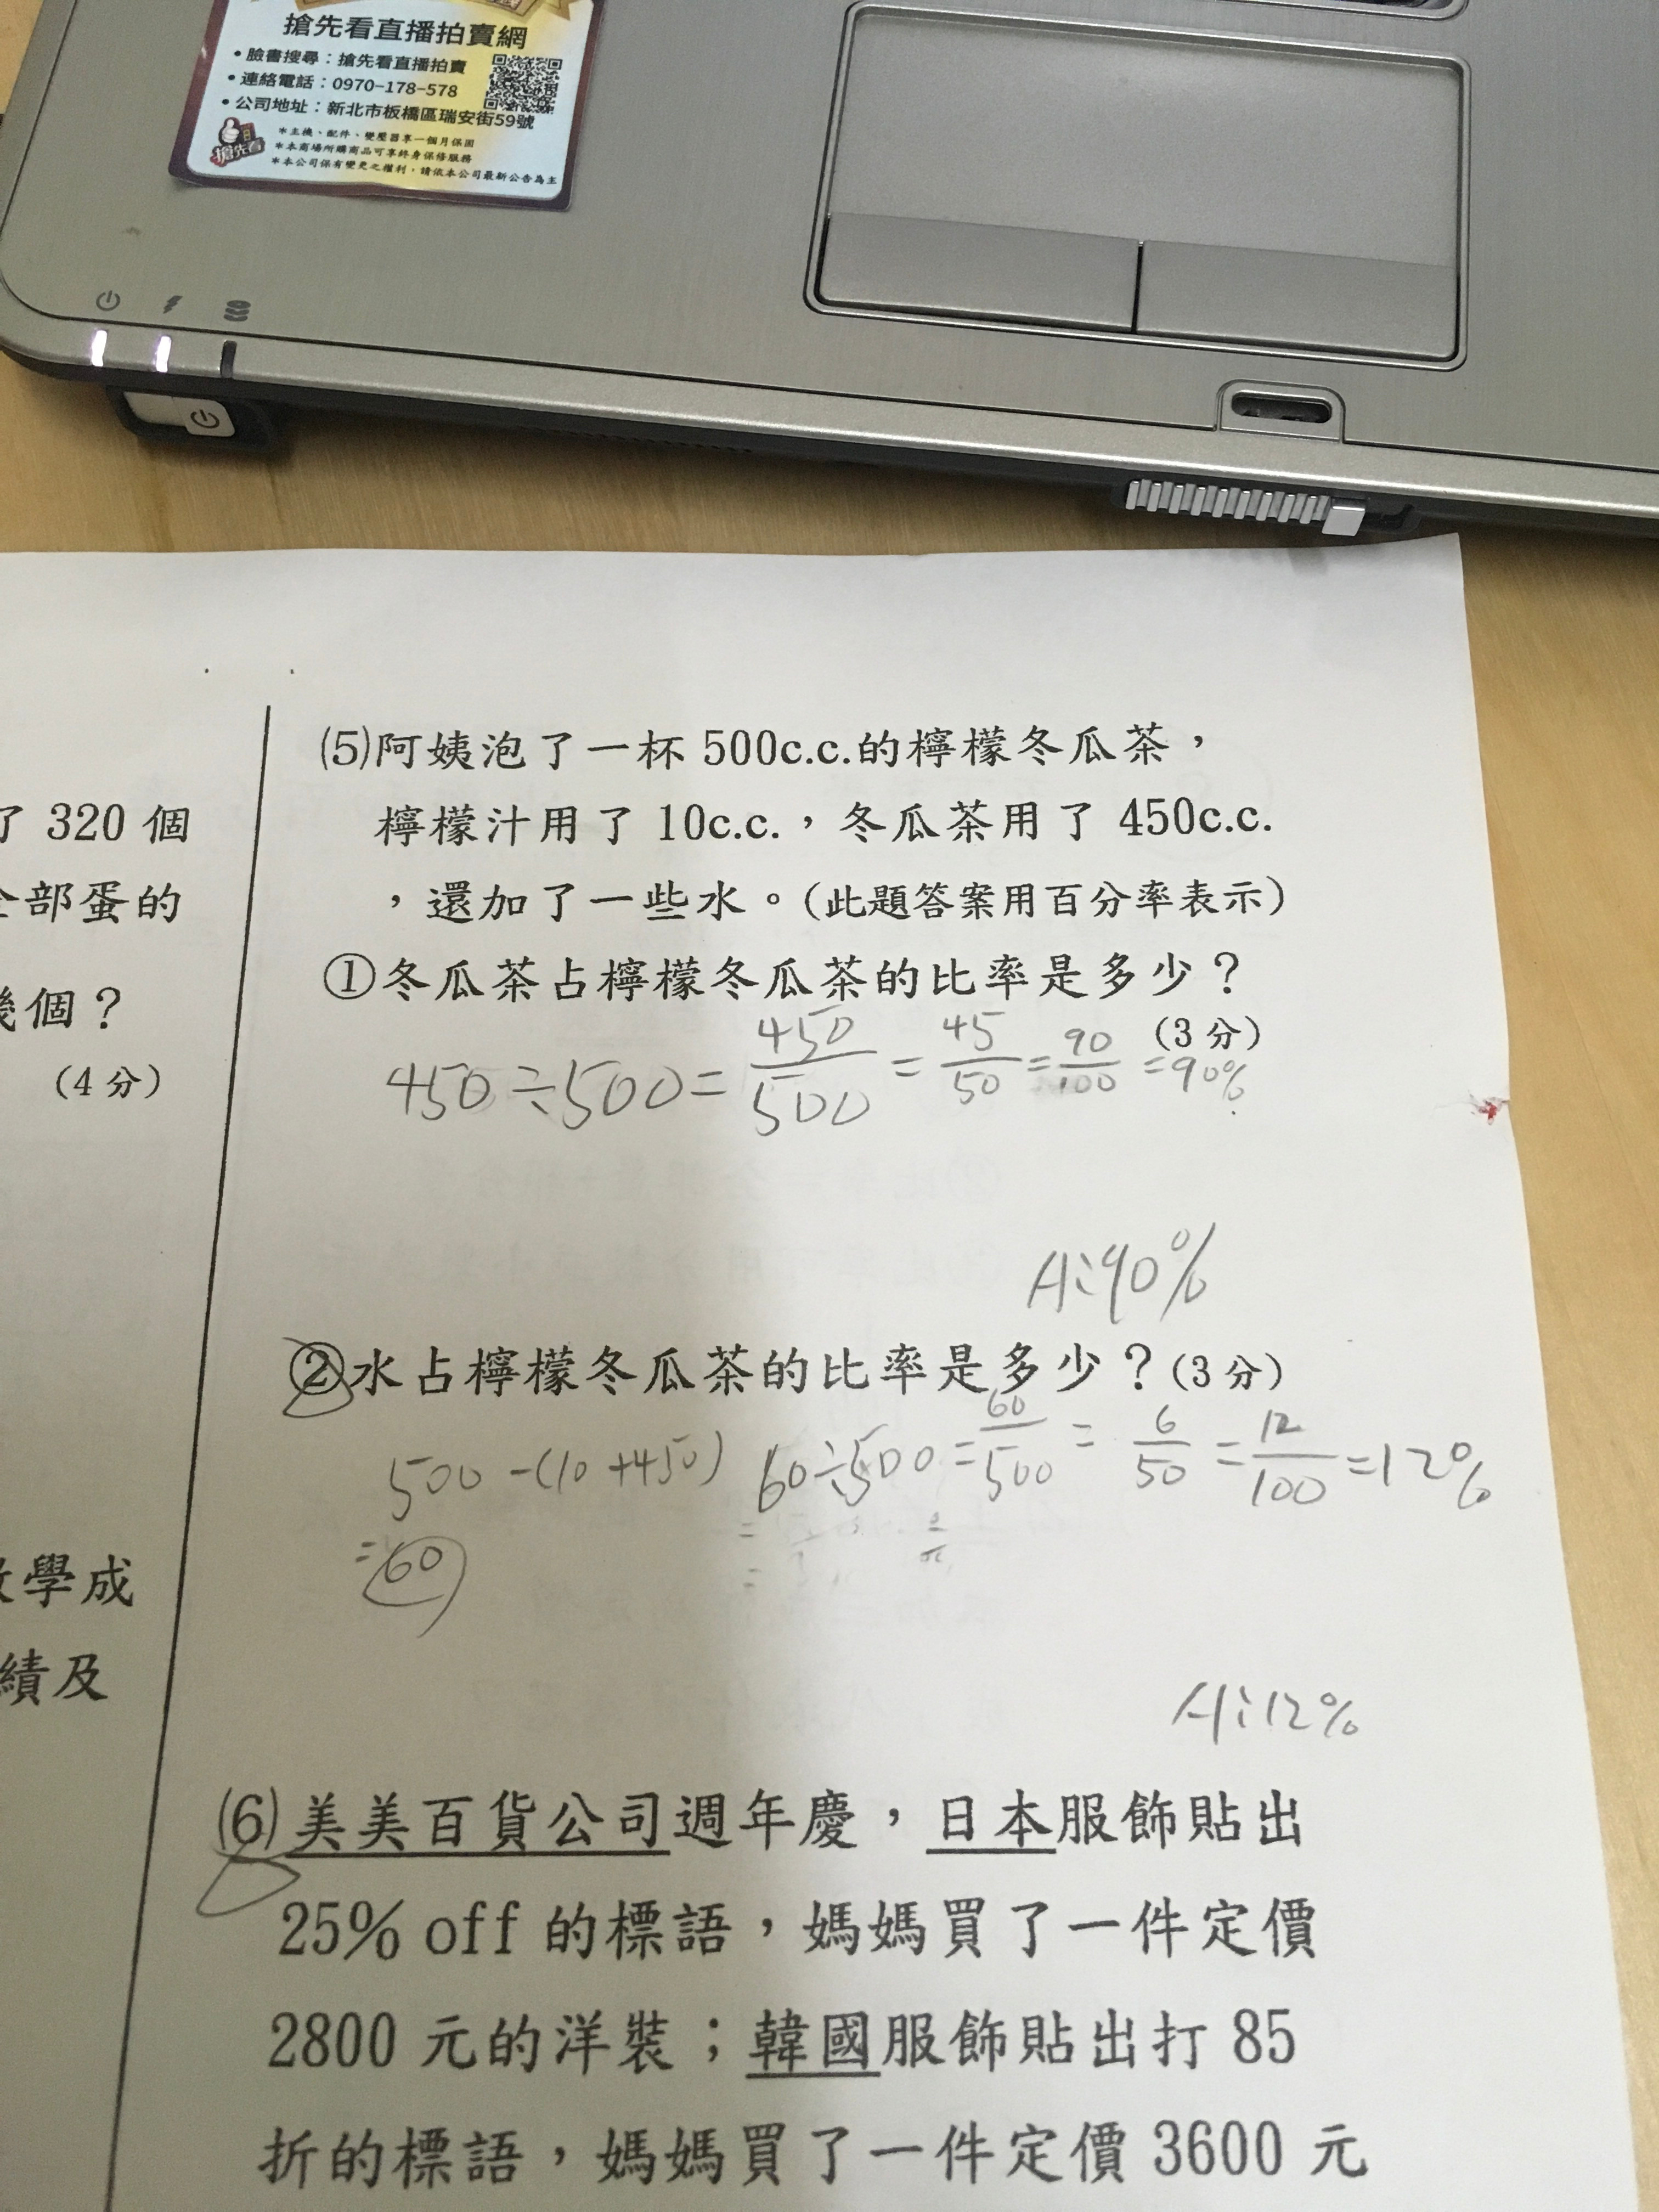 搶先看直播拍賣網
•臉書搜尋：搶先看直播拍賣
•連絡電話：0970-178-578
•公司地址：新北市板橋區瑞安街59號
搶先看
＊主機、配件、變壓器享一個月保固
＊本商場所購商品可享終身保修服務
＊本公司保有變更之權利，請依本公司最新公告為主
了 320 個
全部蛋的
幾個？
(4 分)
數學成
績及
(5)阿姨泡了一杯 500c.c.的檸檬冬瓜茶，
檸檬汁用了 10c.c.，冬瓜茶用了 450c.c.
，還加了一些水。(此題答案用百分率表示)
①冬瓜茶占檸檬冬瓜茶的比率是多少？
(3 分)
450÷500=450/500=45/50=90/100=90%
A:90%
②水占檸檬冬瓜茶的比率是多少？(3 分)
500-(10+450) 60÷500=60/500=6/50=12/100=12%
=60
A:12%
(6)美美百貨公司週年慶，日本服飾貼出
25% off 的標語，媽媽買了一件定價
2800 元的洋裝；韓國服飾貼出打 85
折的標語，媽媽買了一件定價 3600 元